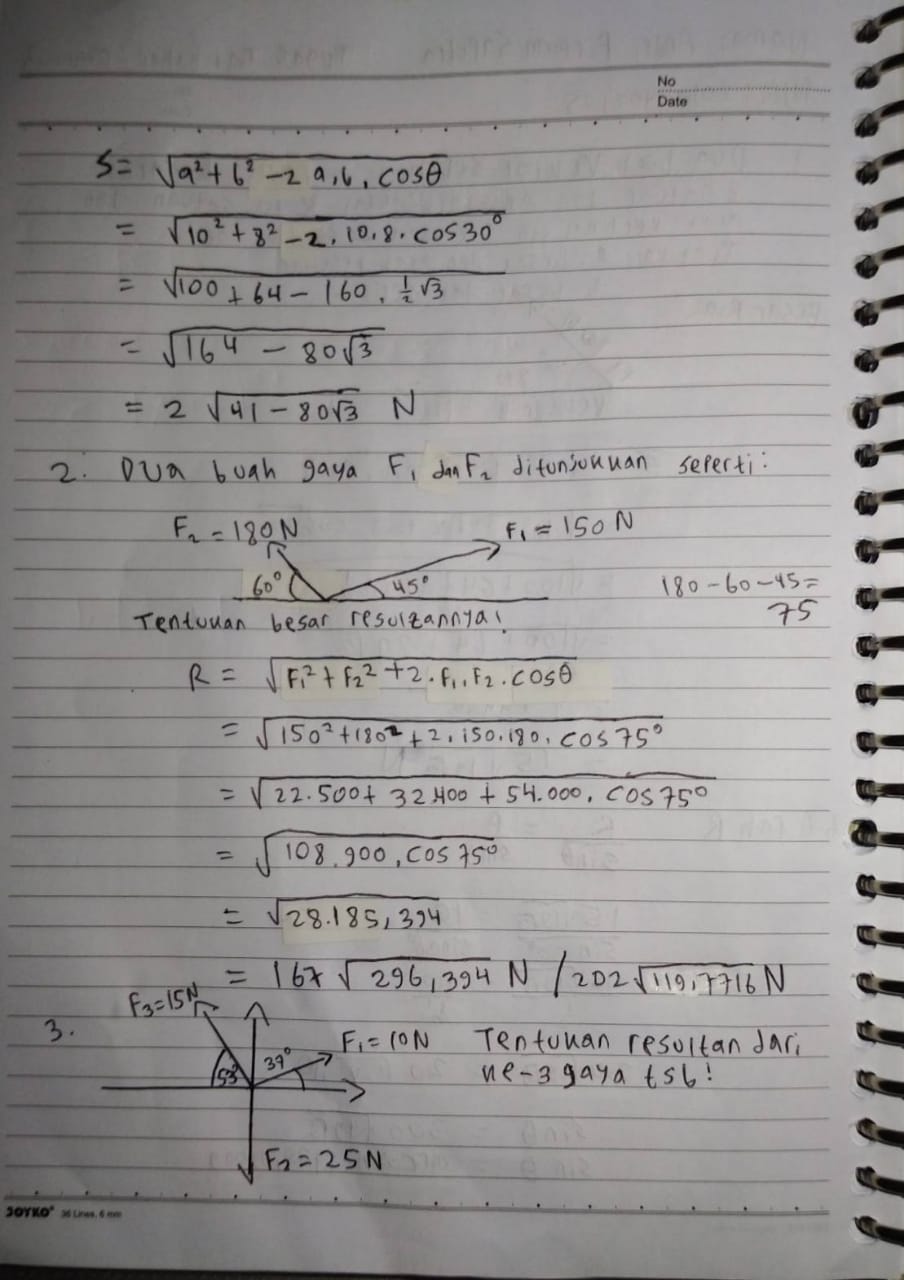 No
Date
S = √a² + b² - 2 a.b. cosθ
= √10² + 8² - 2. 10.8. cos30°
= √100 + 64 - 160. ½√3
= √164 - 80√3
= 2 √41 - 80√3 N
2. Dua buah gaya F₁ dan F₂ ditunjukkan seperti:
F₂ = 180 N F₁ = 150 N
60° 45° 180-60-45=
75
Tentukan besar resultannya!
R = √F₁² + F₂² + 2. F₁. F₂. cosθ
= √150² + 180² + 2. 150. 180. cos 75°
= √22.500 + 32.400 + 54.000. cos 75°
= √108.900, cos 75°
= √28.185,394
= 167 √296,394 N / 202 √119,7716 N
F₃=15N
3. F₁ = 10N Tentukan resultan dari
53° 39° ke-3 gaya tsb!
F₂ = 25 N
JOYKO 36 Lines, 6 mm